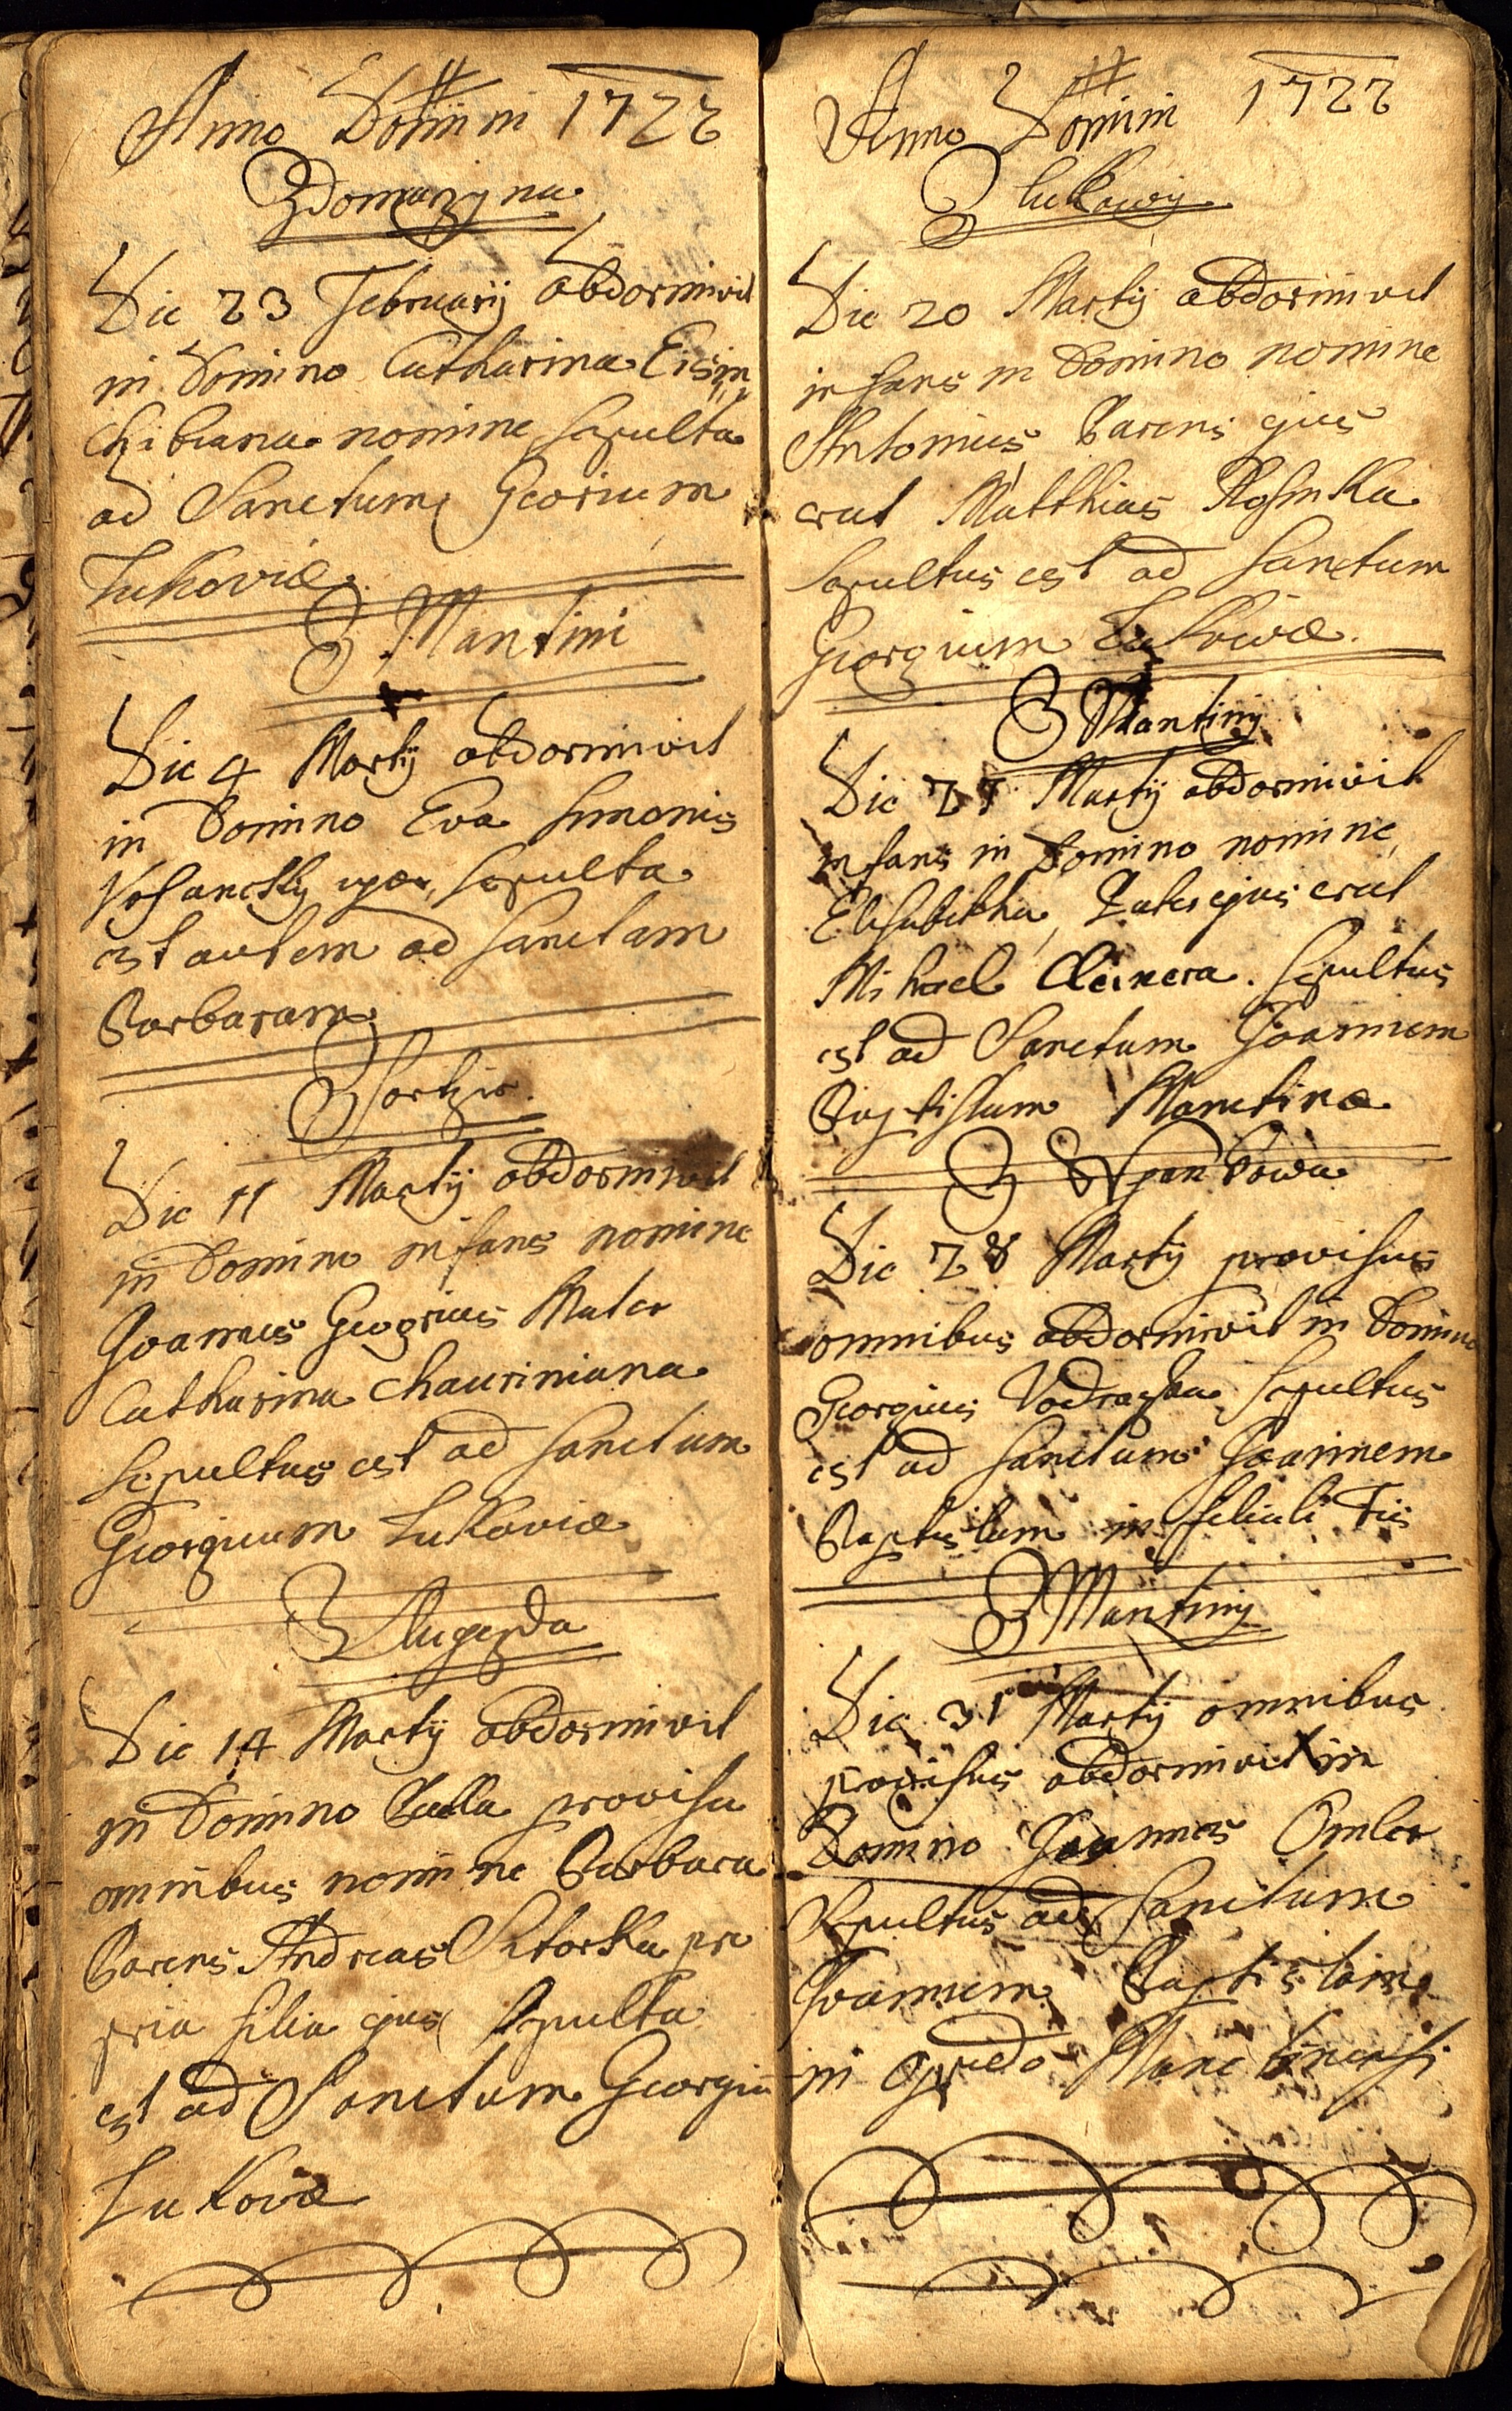 Anno Domini 1722
Zdomazyna
Die 23 Februarij abdormivit
in Domino Catharina Eisin
chibiana nomine sepulta
ad Sanctum Georium
Lukoviæ
Z Mantini
Die 4 Martij abdormivit
in Domino Eva Simonis
sepulta
est autem ad sanctam
Barbaram
Die 11 Martij abdormivit
in Domino infans nomine
Joannes Geogrius Mater
Catharina Chauriniana
sepultus est ad sanctum
Georgium Lukoviæ
Z Augezda
Die 14 Martij abdormivit
in Domino Puella provisa
omnibus nomine Barbara
Parens Andreas Sstorka pro
pria filia ejus sepulta
est ad Sanctum Georgiu
Lukoviæ
Anno Domini 1722
Z Lukowy
Die 20 Martij abdormivit
infans in Domino nomine
Antonius Parens ejus
erat Matthias
Sepultus est ad sanctum
Georgium Lukowiæ
Z Mantiny
Die Martij abdormivit
infans in Domino nomine
Elisabetha, Pater ejus erat
Mihael Cleinera. Sepultus
est ad Sanctum Joannem
Baptistam Manetinæ
Die 28 Martij provisus
omnibus abdormivit in Domino
Georgius Vodrazka Sepultus
est ad sanctum Joannem
Baptistam in
Z Mantiny
Die 31 Martij omnibus
provisus abdormivit in
Domino Joannes Omler
Sepultus ad Sanctum
Joannem Baptistam
in Opido Manetinensi